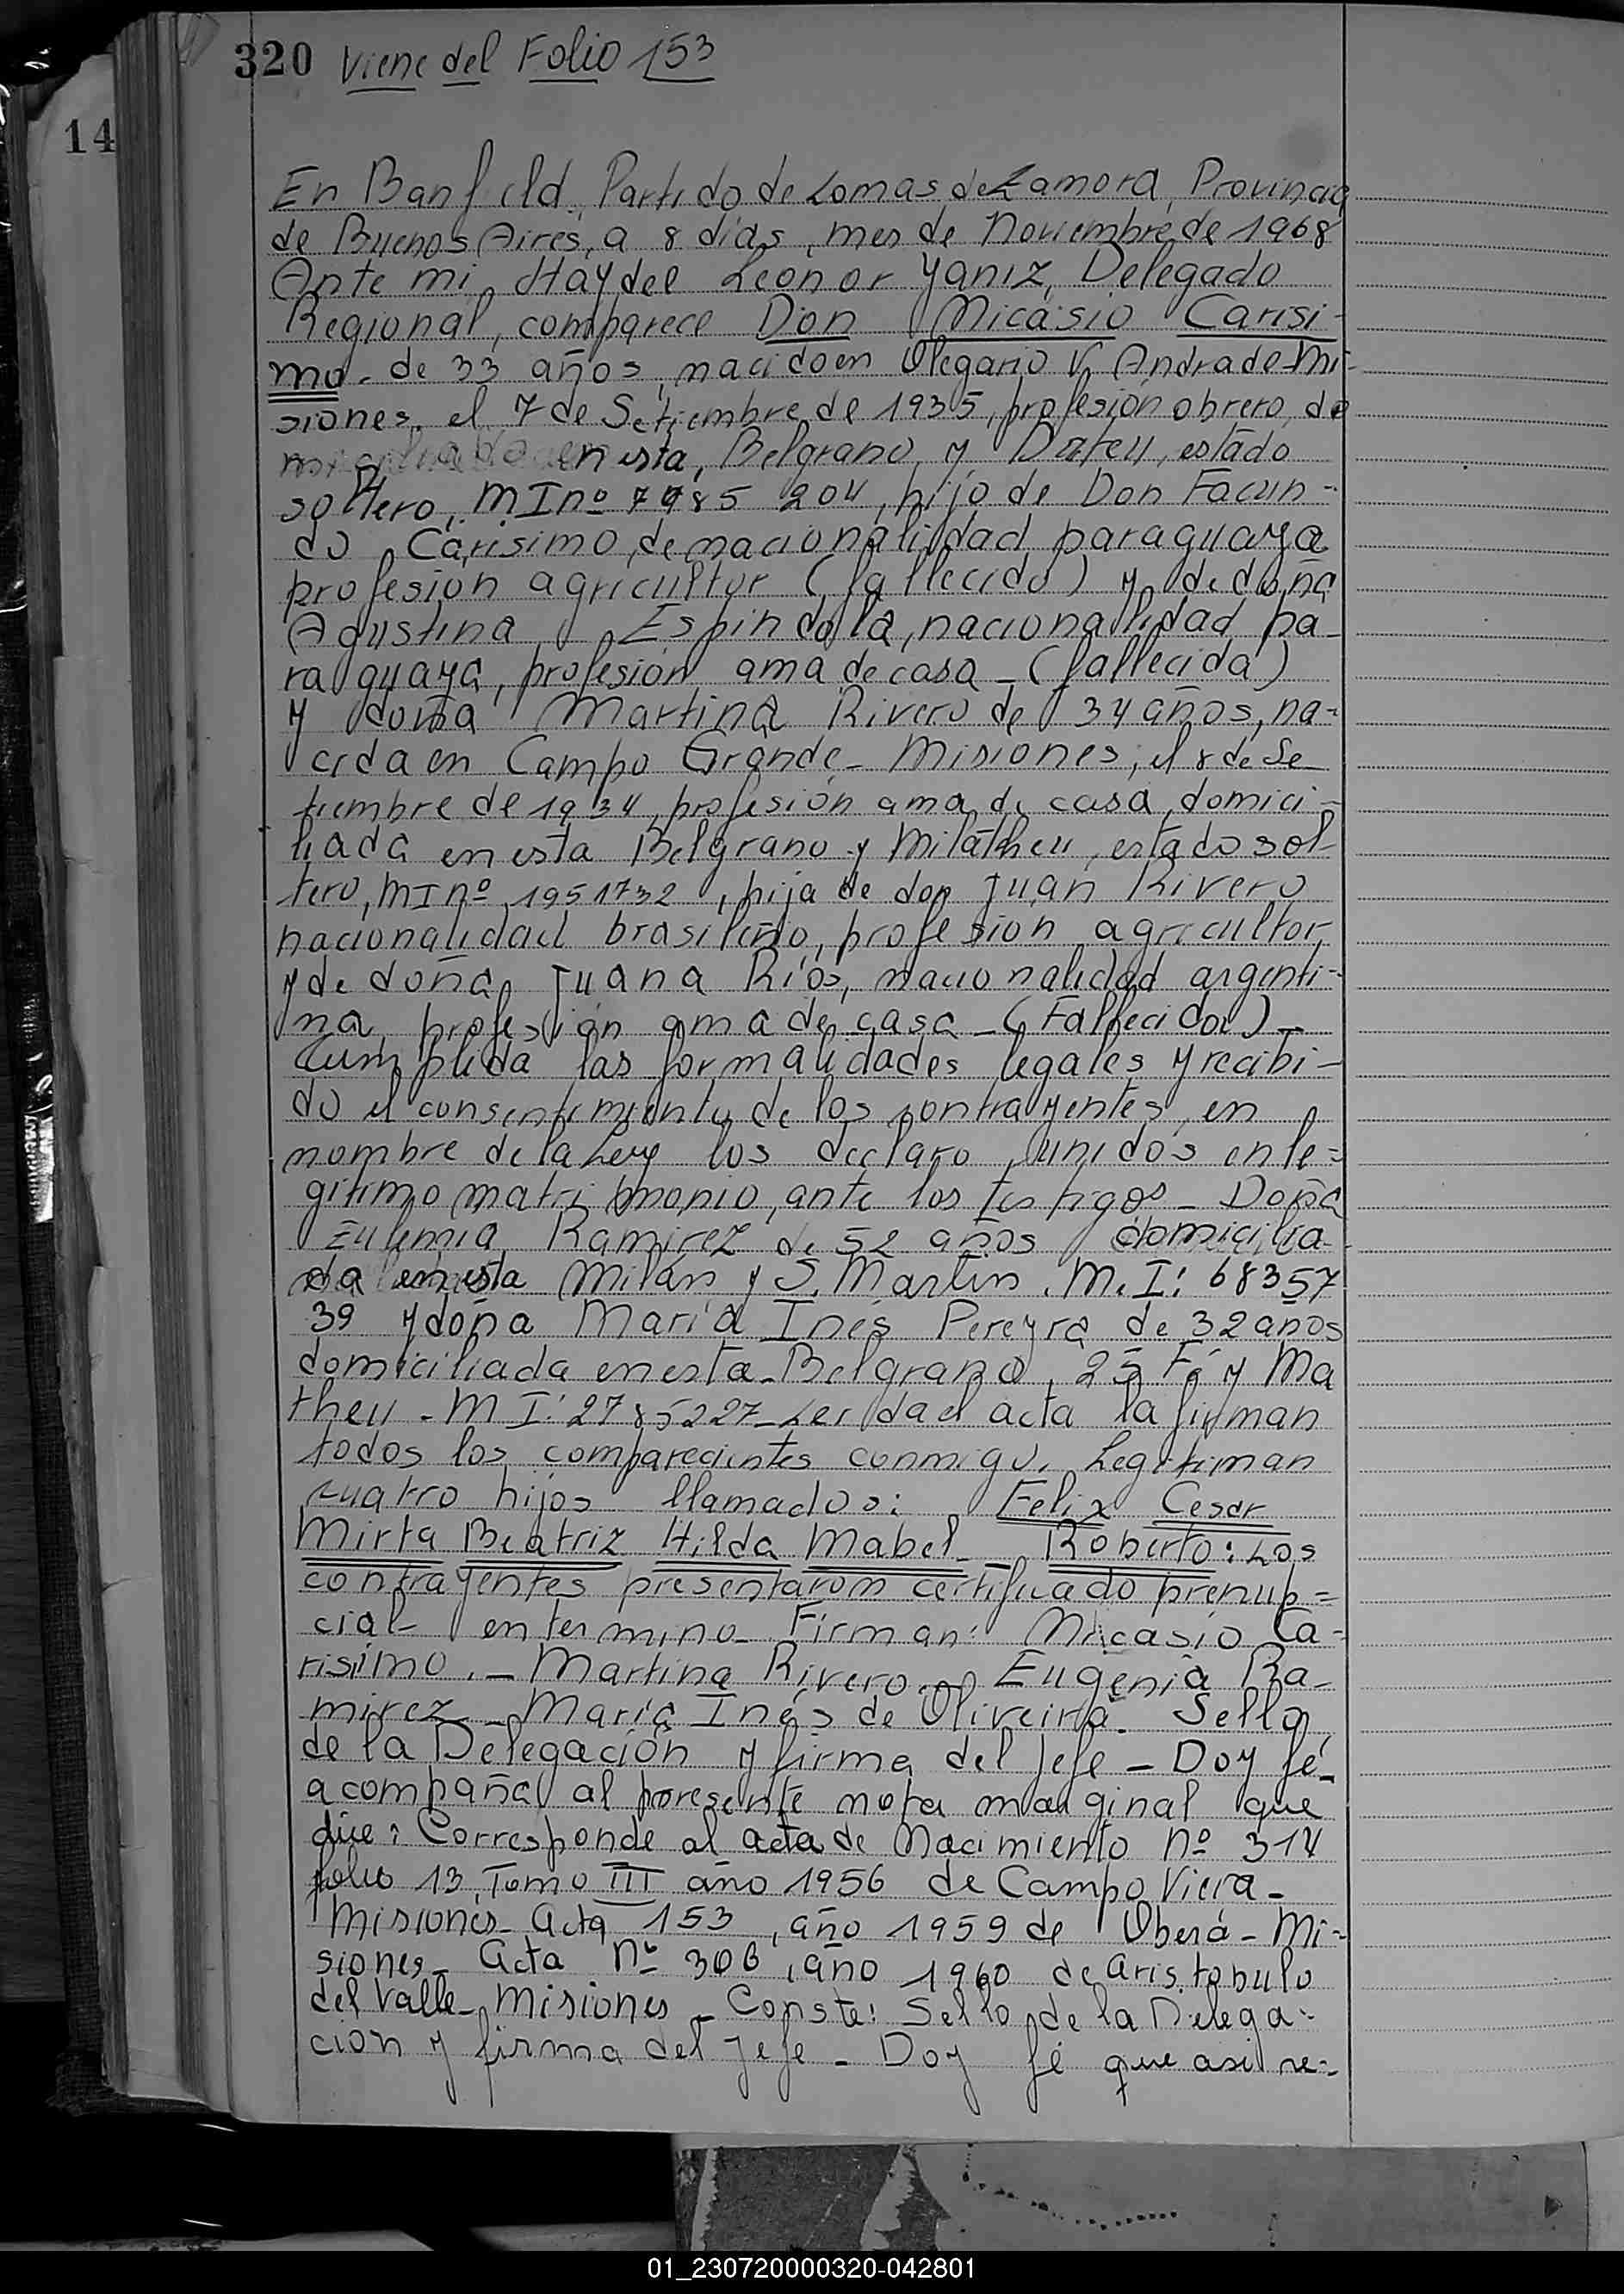 320 Viene del Folio 153
14
En Banfield, Partido de Lomas de Zamora, Provincia
de Buenos Aires, a 8 dias, mes de Noviembre de 1968
Ante mi, Haydee Leonor Yaniz, Delegado
Regional, comparece Don Nicasio Carisi-
mo. de 33 años, nacido en Olegario V. Andrade-Mi-
siones, el 7 de Setiembre de 1935, profesión obrero, do
en esta, Belgrano y estado
soltero, MI nº 7485 204, hijo de Don Facun-
do Carisimo, de nacionalidad paraguaya
profesión agricultor (fallecido) y de doña
Agustina Espindola, nacionalidad pa-
raguaya, profesión ama de casa - (fallecida)
y doña Martina Rivero de 34 años, na-
cida en Campo Grande - Misiones, el 8 de Se-
tiembre de 1934, profesión ama de casa, domici-
liada en esta Belgrano y estado sol-
tero, MI nº 1951732, hija de don Juan Rivero
nacionalidad brasileño, profesion agricultor,
y de doña Juana Rios, nacionalidad argenti-
na, profesión ama de casa - (Fallecidos) -
Cumplida las formalidades legales y recibi-
do el consentimiento de los contrayentes, en
nombre de la Ley los declaro unidos en le-
gitimo matrimonio, ante los testigos - Doña
Ramirez de 52 años domicilia
da en esta Milán y S. Martin. M. I: 68357
39 y doña Maria Inés Pereyra de 32 años
domiciliada en esta - Belgrano y Ma
theu - M I: 2785227 - Leida el acta la firman
todos los comparecientes conmigo. Legitiman
cuatro hijos llamados: Felix Cesar
Mirta Beatriz Hilda Mabel - Roberto: Los
contrayentes presentaron certificado prenup-
cial en termino - Firman: Nicasio Ca-
risimo. - Martina Rivero - Eugenia Ra-
mirez - Maria Inés de Oliveira. Sello
de la Delegación y firma del Jefe - Doy fé -
acompaña al presente nota marginal que
dice: Corresponde al acta de Nacimiento nº 314
folio 13, Tomo III año 1956 de Campo Viera -
Misiones - Acta 153, año 1959 de Oberá - Mi-
siones - Acta Nº 306, año 1960 de Aristobulo
del Valle - Misiones - Conste: Sello de la Delega-
ción y firma del Jefe - Doy fé que asi re-
01_230720000320-042801